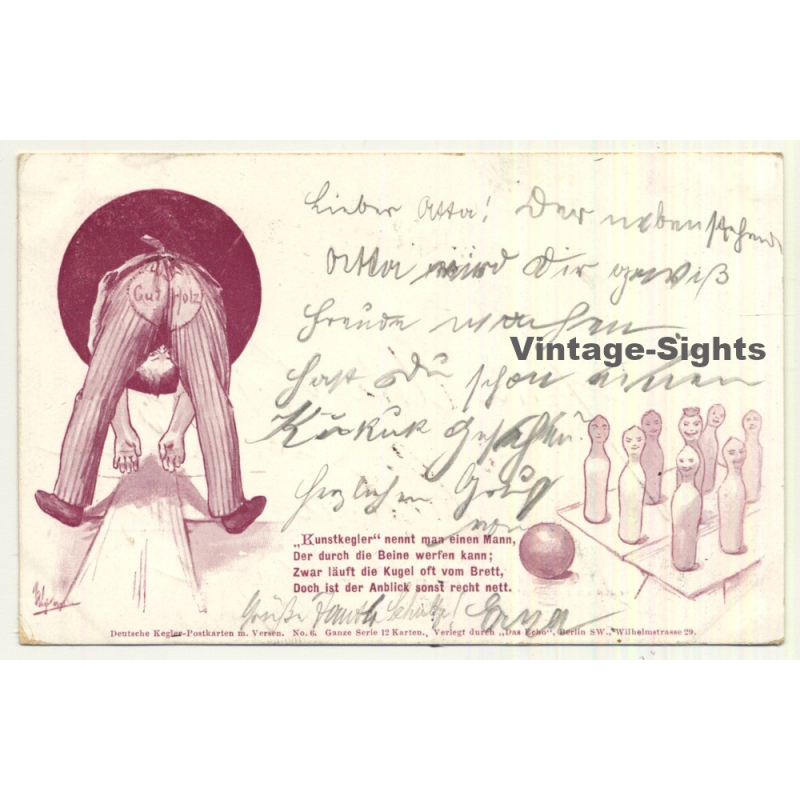 Lieber Otto! Der nebenstehende
Otto wird Dir gewiß
Freude machen.
Vintage-Sights
Hast Du schon einen
Gut Holz
Kukuk gesehen?
Herzlichen Gruß
von
„Kunstkegler" nennt man einen Mann,
Der durch die Beine werfen kann;
Zwar läuft die Kugel oft vom Brett,
Doch ist der Anblick sonst recht nett.
Grüße Schultze! Erna
Deutsche Kegler-Postkarten m. Versen. No. 6. Ganze Serie 12 Karten., Verlegt durch „Das Echo", Berlin SW., Wilhelmstrasse 29.